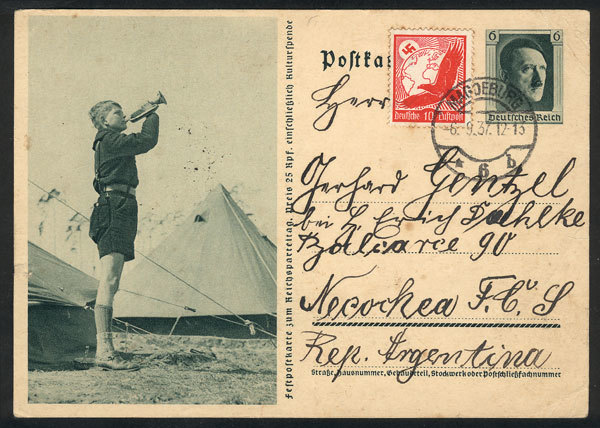 Festpostkarte zum Reichsparteitag. Preis 25 Rpf. einschließlich Kulturspende
Postka
6 6
Deutsches Reich
Deutsche 10 Luftpost
MAGDEBURG
6.9.37.12-13
* 6 b
Herr
Gerhard Gentzel
bei H. Erich Dahlke
Balcarce 90
Necochea F.C. S
Rep. Argentina
Straße, Hausnummer, Gebäudeteil, Stockwerk oder Postschließfachnummer